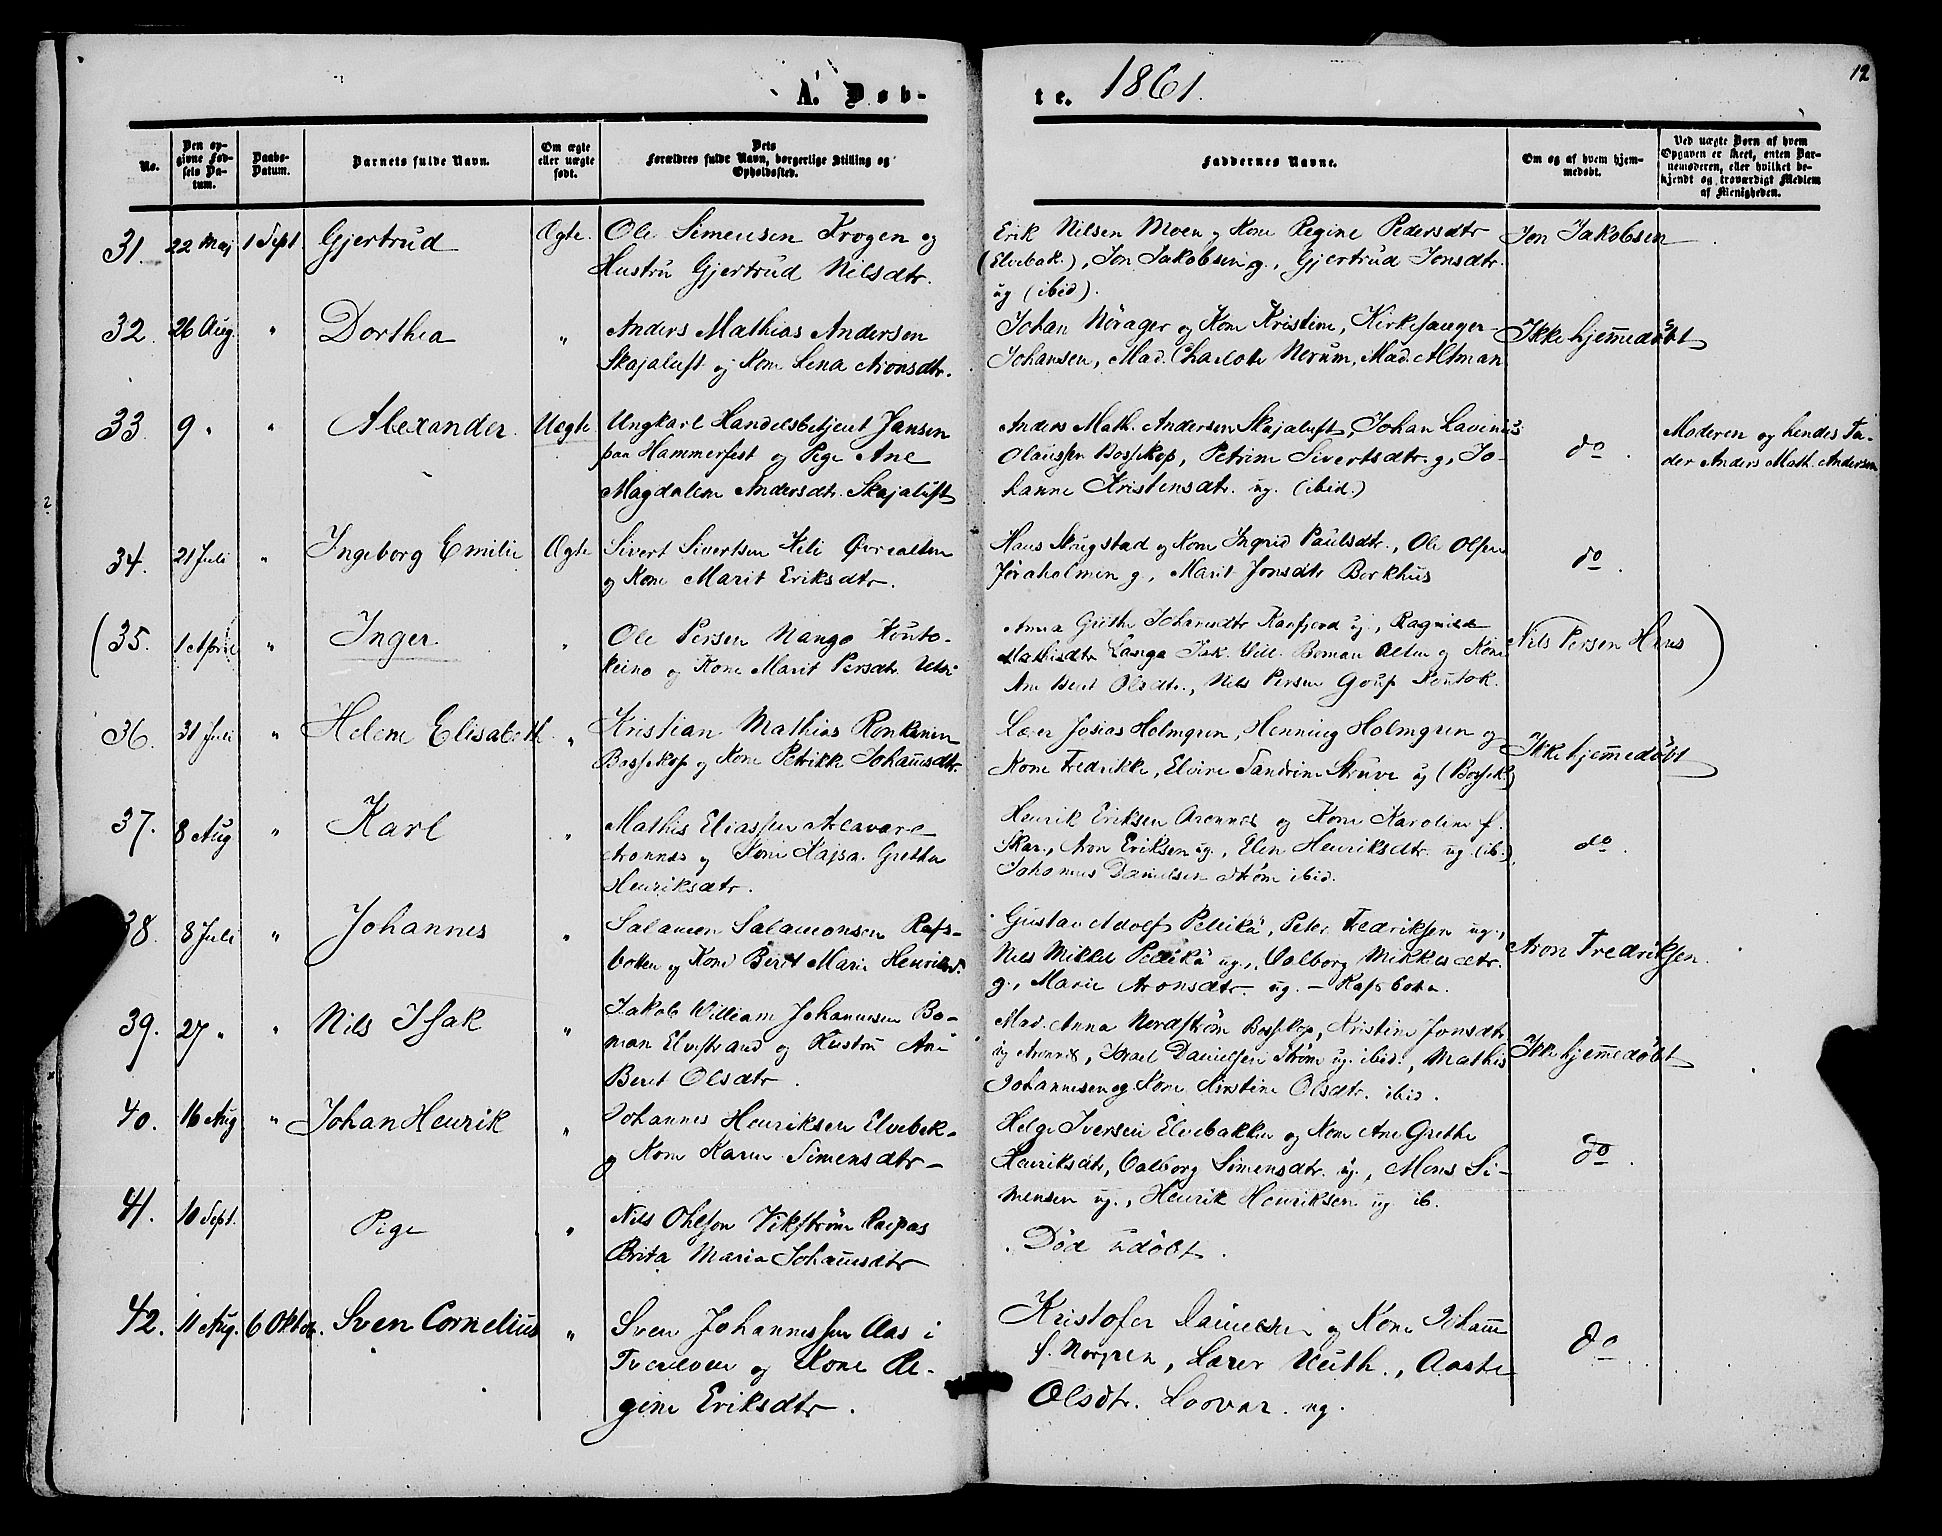 12
A. Døb-
te. 1861.
No.
Den opgivne Fødsels Datum.
Daabs-Datum.
Barnets fulde Navn.
Om ægte eller uægte født.
Dets Forældres fulde Navn, borgerlige Stilling og Opholdssted.
Faddernes Navne.
Om og af hvem hjemmedøbt.
Ved uægte Børn af hvem Opgaven er skeet, enten Barnemoderen, eller hvilket bekjendt og troværdigt Medlem af Menigheden.
31. 22 Maj 1 Sept Gjertrud Ægte.
Ole Simensen Krogen og
Hustru Gjertrud Nilsdtr.
Erik Nilsen Moen og Kone Regine Pedersdtr
(Elvebak.), Jon Jakobsen g., Gjertrud Jonsdtr.
ug (ibid).
Jon Jakobsen
32. 26 Aug. " Dorthea "
Anders Mathias Andersen
Skajaluft og Kone Lena Aronsdtr.
Johan Norager og Kone Kristine, Kirkesanger
Johansen, Mad. Charlote Nerum, Mad. Altman
Ikke hjemmedøbt
33. 9 " " Alexander. Uegte
Ungkarl Handelsbetjent Jansen
paa Hammerfest og Pige Ane
Magdalene Andersdtr. Skajaluft
Anders Math. Andersen Skajaluft, Johan Lavinius
Olaussen Bossekop, Petrine Sivertsdtr. g, Jo-
hanne Kristensdtr. ug. (ibid.)
do.
Moderen og hendes Fa-
der Anders Math. Andersen
34. 21 Juli " Ingeborg Emilie Ægte
Sivert Sivertsen Øvrealten
og Kone Marit Eriksdtr.
Hans Skugstad og Kone Ingrid Paulsdtr., Ole Olsen
Jøraholmen g, Marit Jonsdtr Borkhus
do.
(35. 1 April " Inger "
Ole Persen Nango Kouto-
keino og Kone Marit Persdtr. Utsi
Anna Grethe Johansdtr Kaafjord ug., Ragnild
Mathisdtr Lango Jak. Vill. Boman Alten og Kone
Ane Berit Olsdtr., Nils Persen Goup Koutok.
Nils Persen )
36. 31 Juli " Helene Elisabeth "
Kristian Mathias Ronkainen
Bossekop og Kone Petrikke Johannsdtr.
Lærer Josias Holmgren, Henning Holmgren og
Kone Fredrikke, Elvire Sandrine Struve ug (Bossek)
Ikke hjemmedøbt
37. 8 Aug " Karl "
Mathis Eliassen Alavara
Aronnes og Kone Kajsa Grethe
Henriksdtr.
Henrik Eriksen Aronnes og Kone Karoline f.
Skar., Aron Eriksen ug., Elen Henriksdtr. ug (ib.)
Johannes Danielsen Strøm ibid.
do.
38. 8 Juli " Johannes "
Salamon Salamonsen Rafs-
botten og Kone Berit Marie Henriksd.
Gustav Adolf Pellikä, Peter Fredriksen ug.,
Nils Mikkel Pellikä ug., Valborg Mikkelsdtr.
g., Marie Aronsdtr. ug. - Rafsboten.
Aron Fredriksen.
39. 27 " " Nils Isak "
Jakob William Johannesen Bo-
man Elvestrand og Hustru Ane
Berit Olsdtr.
Mad. Anna Nordstrøm Bossekop, Kristine Jonsdtr
ug Aronnes, Israel Danielsen Strøm ug. ibid., Mathis
Johannesen og Kone Kirstine Olsdtr. ibid.
Ikke hjemmedøbt
40. 16 Aug " Johan Henrik "
Johannes Henriksen Elvebak.
og Kone Karen Simensdtr
Helge Iversen Elvebakken og Kone Ane Grethe
Henriksdtr, Valborg Simensdtr. ug., Mons Si-
mensen ug., Henrik Henriksen ug ib.
do.
41. 10 Sept. Pige "
Nils Ohlson Vikstrøm Raipas
Brita Maria Johannsdtr
Død udøbt.
42. 11 Aug. 6 Oktob. Sven Cornelius "
Sven Johannessen Aas i
Tverelven og Kone Re-
gine Eriksdtr.
Kristofer Danielsen og Kone Johann
f. Norgren, Lærer Heith., Aaste
Olsdtr. Loovar. ug.
do